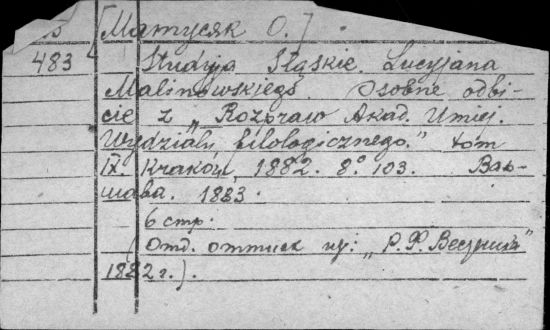 [Матусяк О.]
483 Studyja Śląskie. Lucyjana
Malinowskiego. Osobne odbi-
cie z „Rozpraw Akad. Umiej.
Wydziału filologicznego." tom
IX. Kraków, 1882. 8° 103. Вар-
шава. 1883.
6 стр.
(Отд. оттиск из: „Р. Ф. Вестника"
1882 г.).